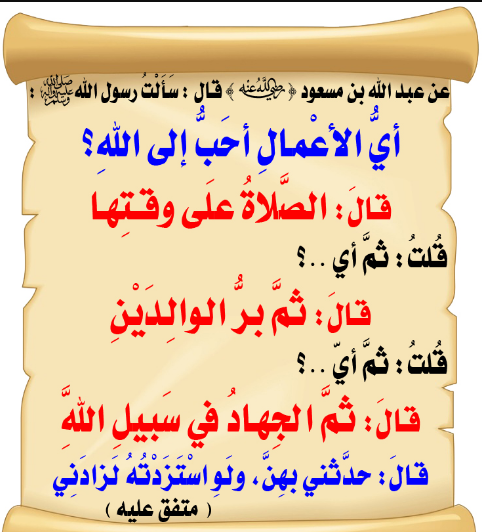 عن عبد الله بن مسعود ﴿ رضي الله عنه ﴾ قال : سَأَلْتُ رسول الله ﷺ :
أيُّ الأعْمالِ أحَبُّ إلى اللهِ؟
قالَ: الصَّلاةُ علَى وقْتِها
قُلتُ: ثمَّ أي ..؟
قالَ: ثمَّ برُّ الوالِدَيْنِ
قُلتُ: ثمَّ أيّ ..؟
قالَ: ثمَّ الجِهادُ في سَبيلِ اللهَِّ
قالَ: حدَّثَني بهِنَّ، ولَوِ اسْتَزَدْتُهُ لَزادَنِي
( متفق عليه )